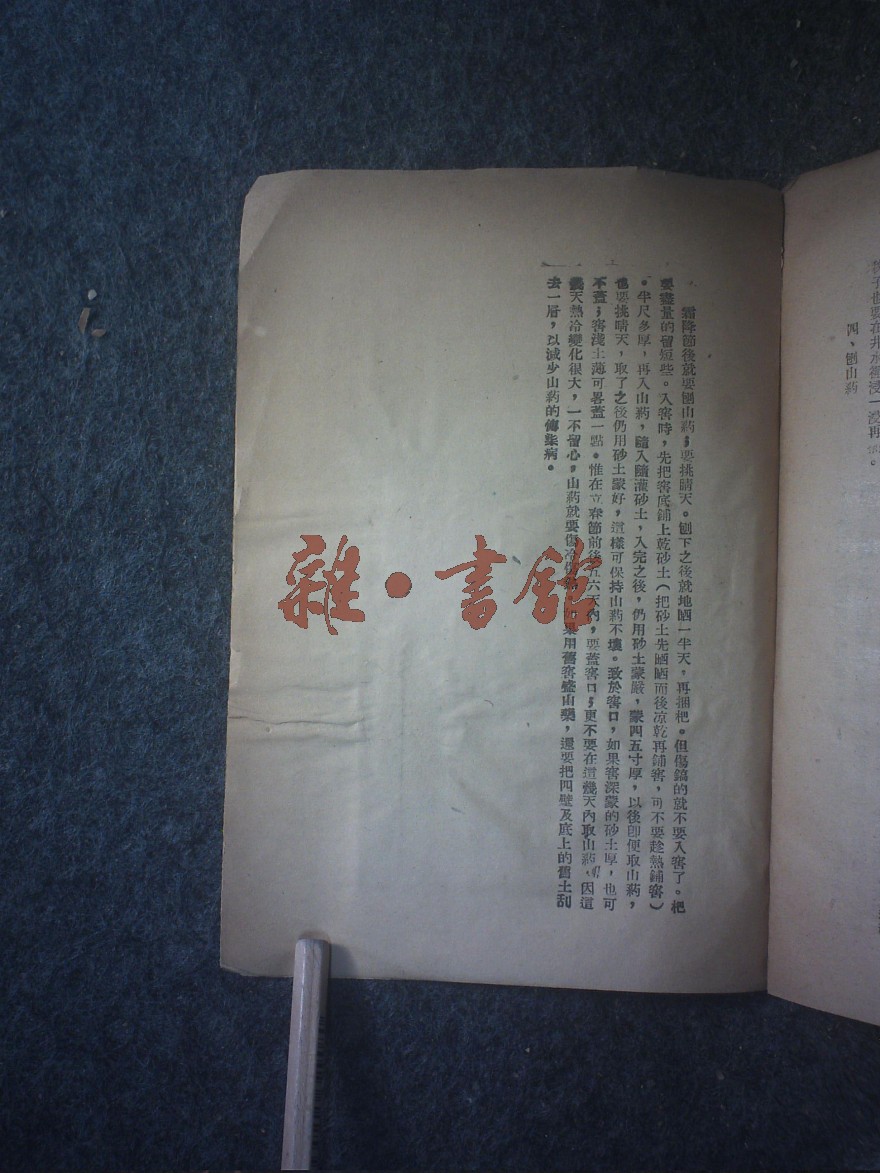 四、刨山药
霜降節後就要刨山药；要挑晴天。刨下之後就地晒一半天，再捆杷。但傷鎬的就不要入窖了。杷
要盡量的留短些。入窖時，先把窖底鋪上乾砂土（把砂土先晒晒而後凉乾再鋪窖，可不要趁熱鋪窖）
。半尺多厚，再入山药，隨入隨灌砂土，入完之後，仍用砂土蒙嚴，蒙四五寸厚，以後即便取山药，
也要挑晴天，取了之後仍用砂土蒙好，這樣可保持山药不壞。致於窖口，如果窖深蒙的砂土厚，也可
不蓋；窖淺土薄可畧蓋一點。惟在立春節前後五六天內，要蓋窖口；更不要在這幾天內取山药，因這
幾天熱冷變化很大，一不留心，山药就要傷冷傷熱。如果用舊窖盛山藥，還要把四壁及底上的舊土刮
去一層，以減少山药的傳染病。
雜·書館